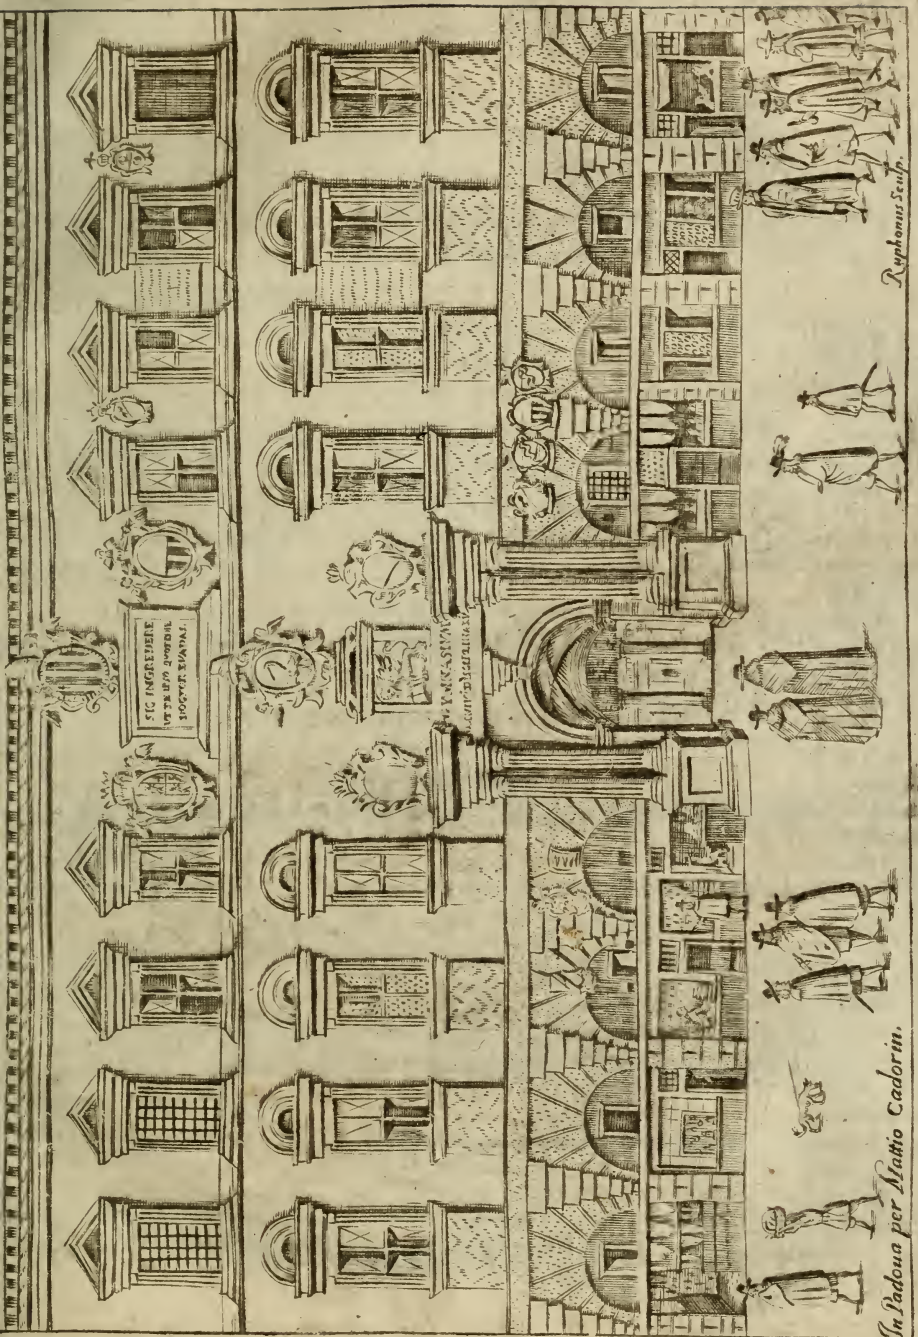 SIC INGREDERE
VT TE IPSO QVOTIDIE
DOCTIOR EVADAS.
YMNASIVM
In Padoua per Mattio Cadorin.
Ruphonus Sculp.